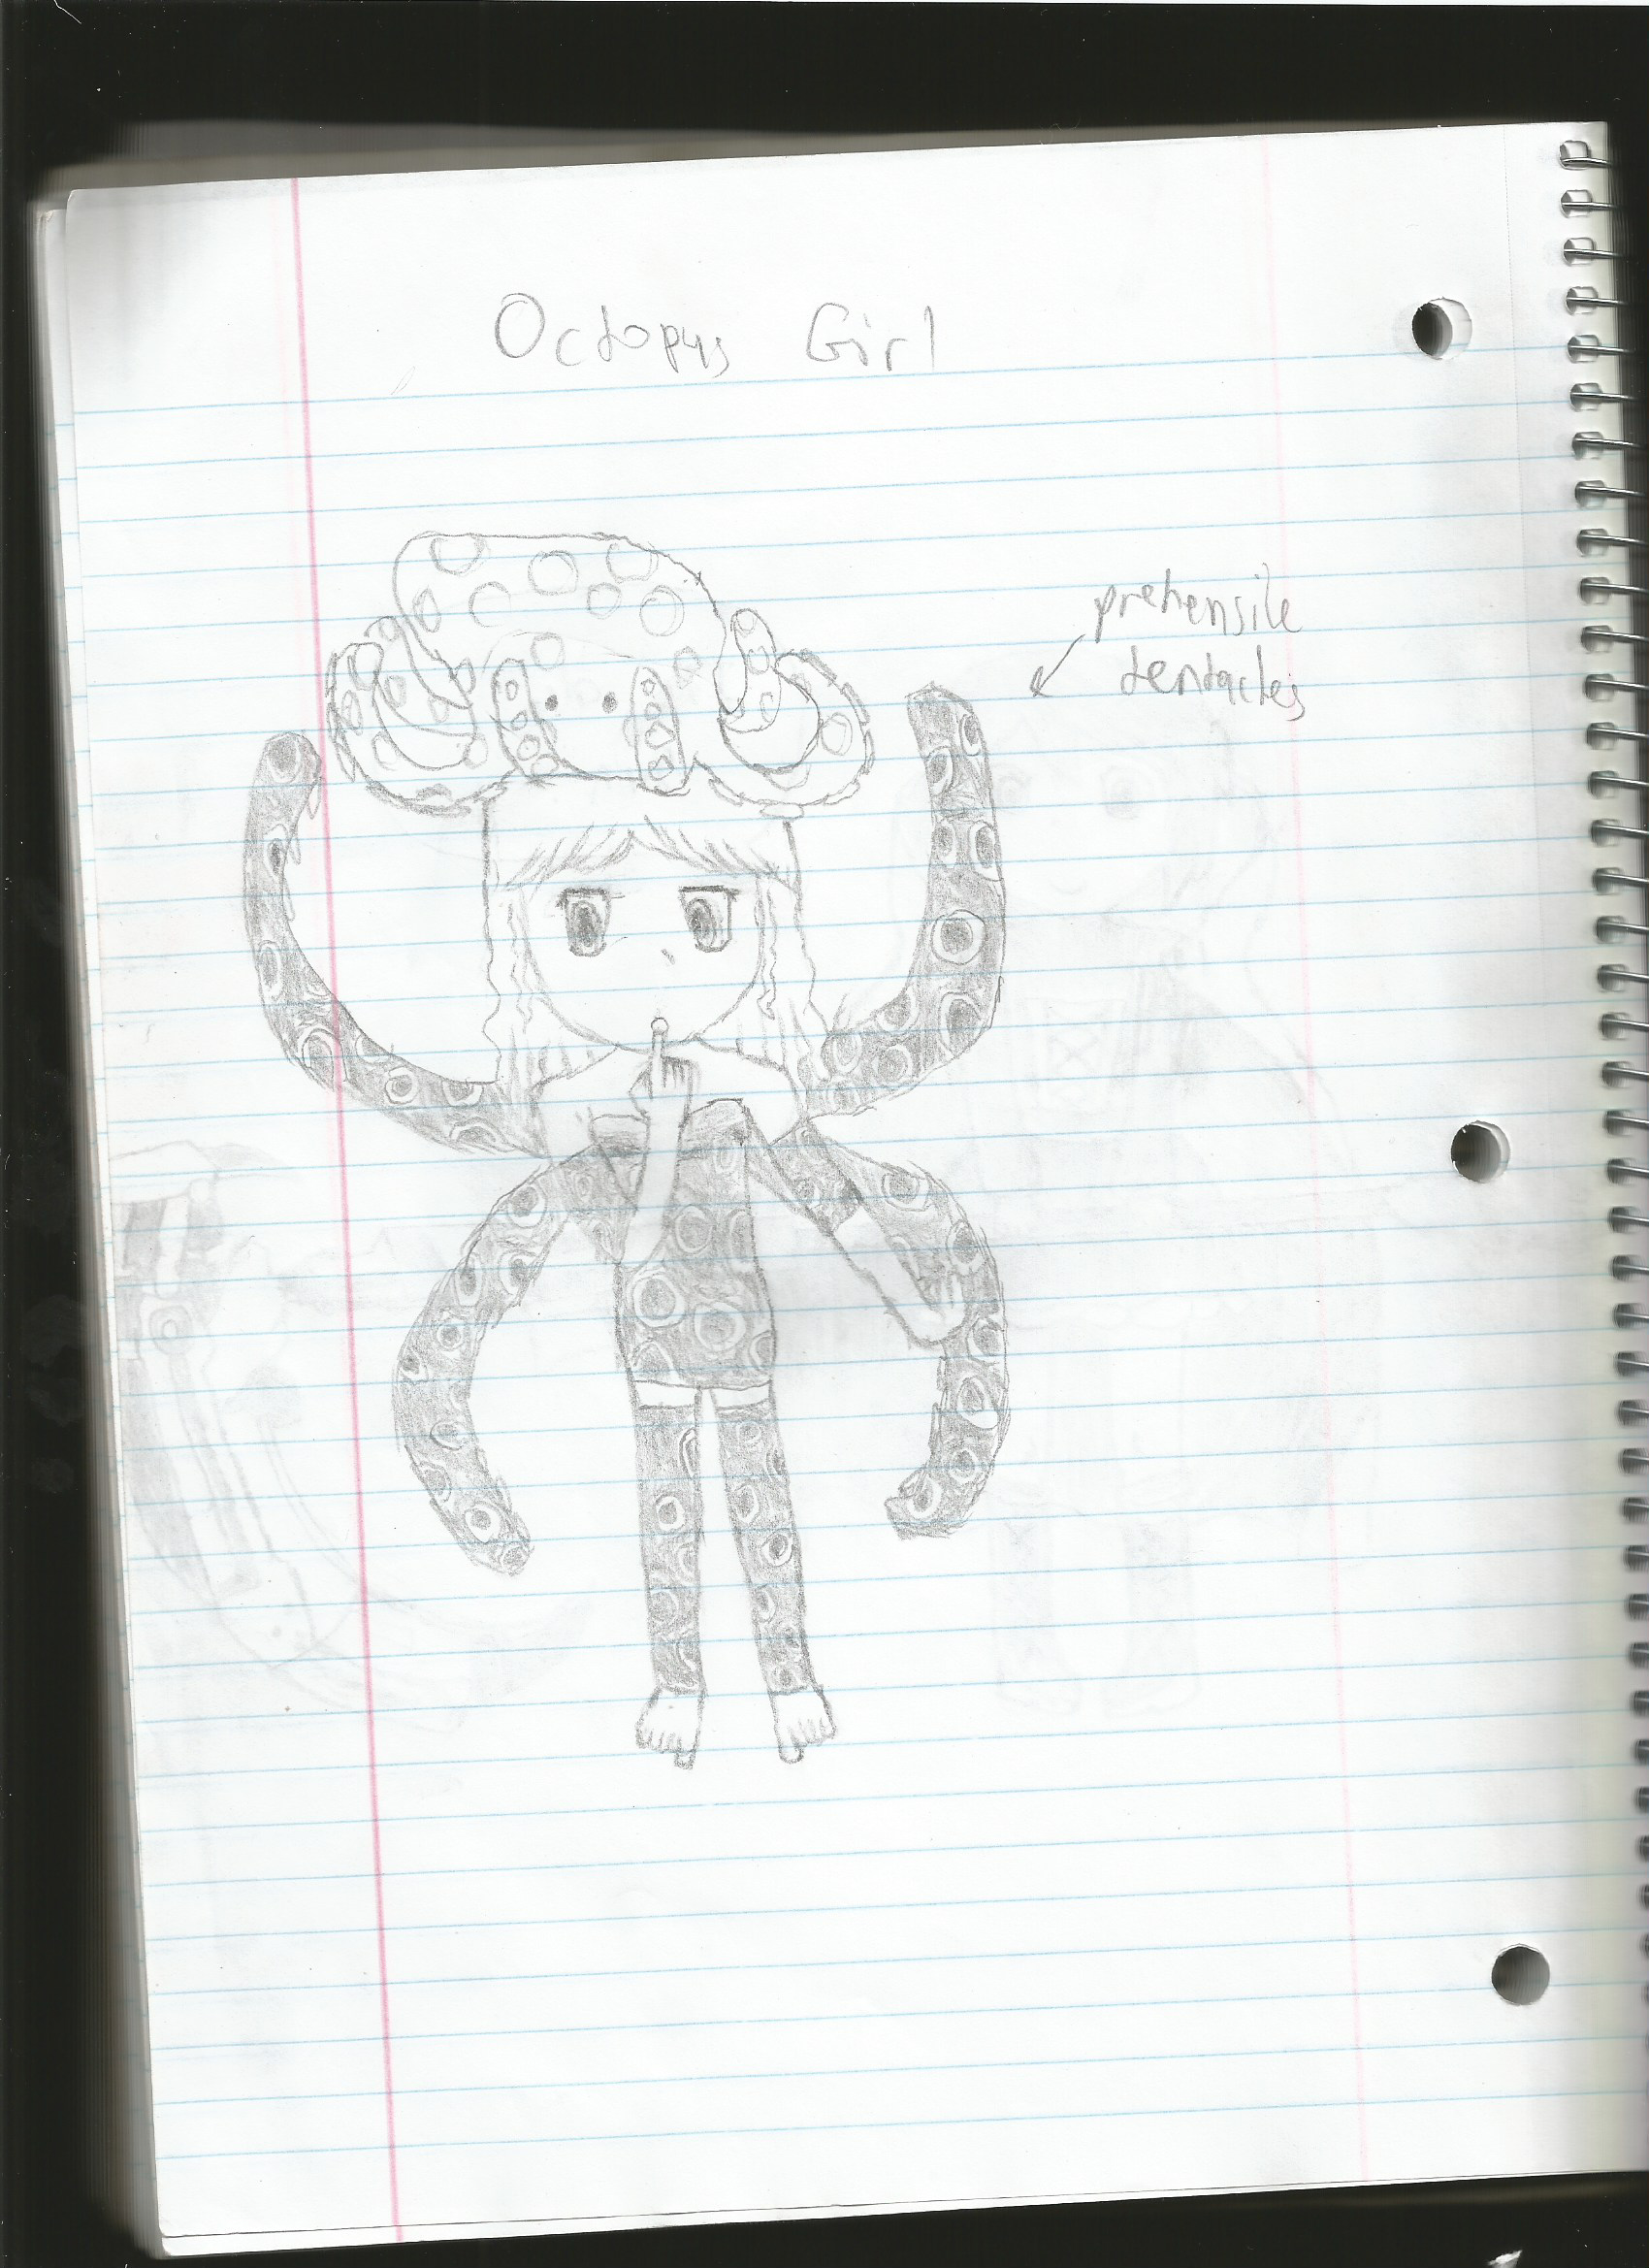 Octopus Girl
prehensile
tentacles